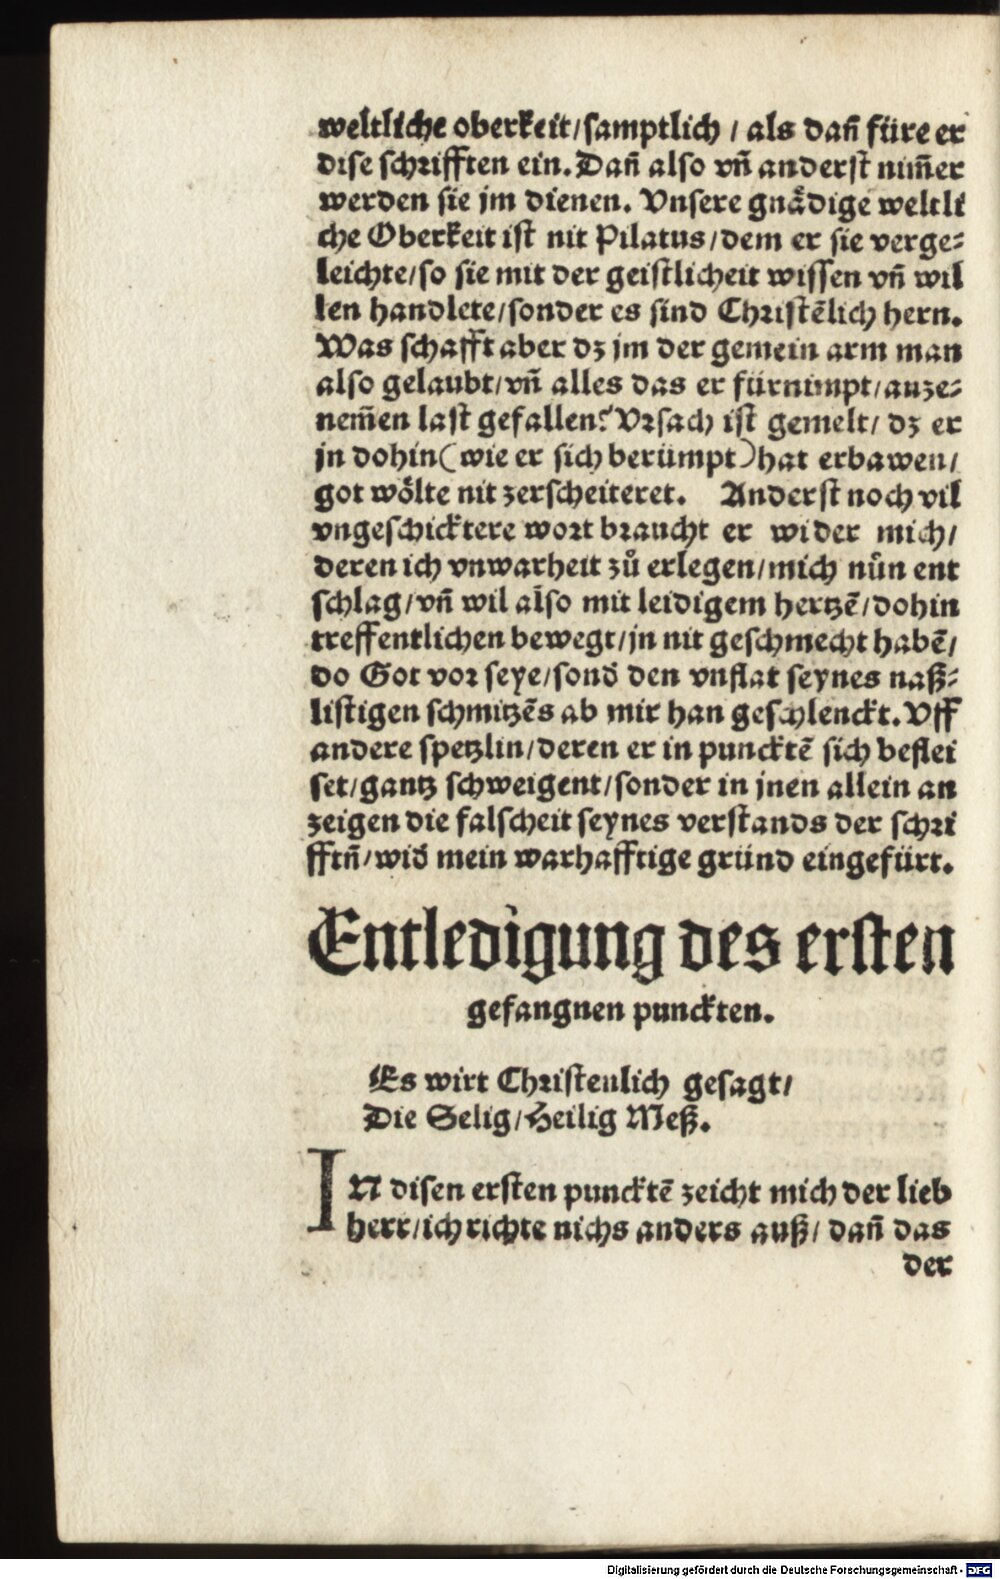 weltliche oberkeit/samptlich / als dañ füre er
dise schrifften ein. Dañ also vñ anderst nim̃er
werden sie jm dienen. Vnsere gnådige weltli
che Oberkeit ist nit Pilatus/dem er sie verge⸗
leichte/so sie mit der geistlicheit wissen vñ wil
len handlete/sonder es sind Christẽlich hern.
Was schafft aber dz jm der gemein arm man
also gelaubt/vñ alles das er fürnimpt/anze⸗
nem̃en last gefallen? Vrsach ist gemelt/ dz er
jn dohin(wie er sich berümpt)hat erbawen/
got wôlte nit zerscheiteret. Anderst noch vil
vngeschicktere wort braucht er wider mich/
deren ich vnwarheit zů erlegen/mich nůn ent
schlag/vñ wil also mit leidigem hertzẽ/dohin
treffentlichen bewegt/jn nit geschmecht habẽ/
do Got vor seye/sond̃ den vnflat seynes naß⸗
listigen schmitzẽs ab mir han geschlenckt. Vff
andere spetzlin/deren er in puncktẽ sich beflei
set/gantz schweigent/sonder in jnen allein an
zeigen die falscheit seynes verstands der schri
fftñ/wid̃ mein warhafftige gründ eingefürt.
Entledigung des ersten
gefangnen punckten.
Es wirt Christenlich gesagt/
Die Selig/Heilig Meß.
IN disen ersten puncktẽ zeicht mich der lieb
herr/ich richte nichs anders auß/ dañ das
der
Digitalisierung gefördert durch die Deutsche Forschungsgemeinschaft - DFG